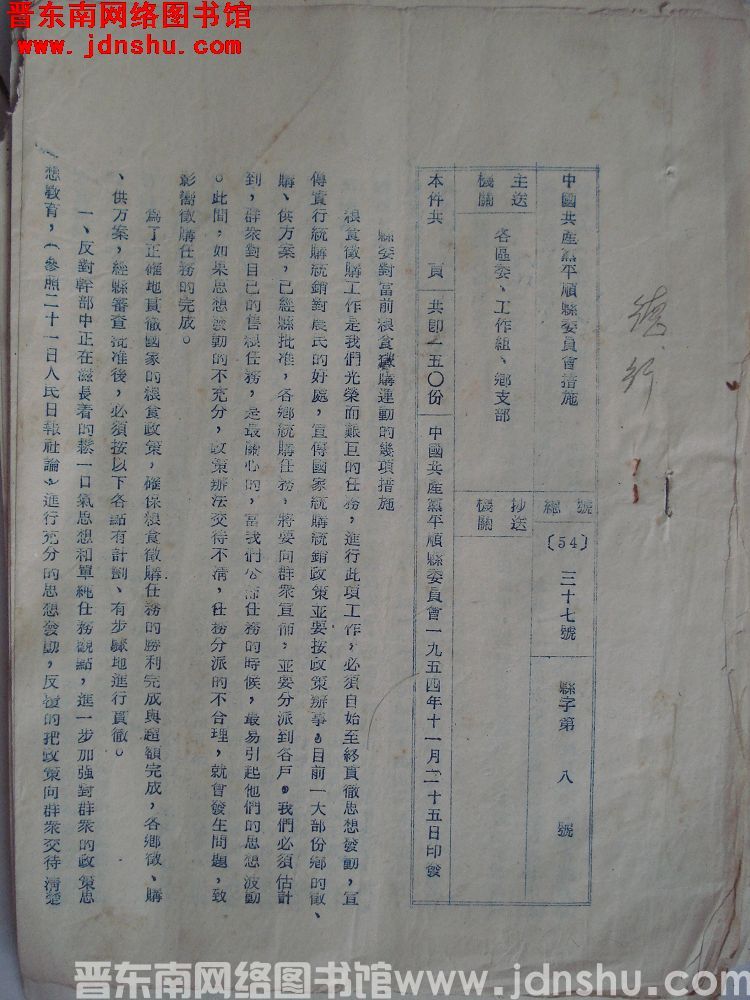 晋东南网络图书馆
www.jdnshu.com
中國共産黨平順縣委員會措施
總號
〔54〕三十七號
縣字第八號
主送機關
各區委、工作組、鄉支部
抄送機關
本件共　頁
共印一五〇份
中國共産黨平順縣委員會一九五四年十一月二十五日印發
縣委對當前粮食徵購運動的幾項措施
粮食徵購工作是我們光榮而艱巨的任務，進行此項工作，必須自始至終貫徹思想發動，宣
傳實行統購統銷對農民的好處，宣傳國家統購統銷政策並要按政策辦事。目前一大部份鄉的徵、
購、供方案，已經縣批准，各鄉統購任務，將要向群衆宣佈，並要分派到各戶。我們必須估計
到，群衆對自己的售粮任務，是最關心的，當我們公佈任務的時候，最易引起他們的思想波動
。此間，如果思想發動的不充分，政策辦法交待不清，任務分派的不合理，就會發生問題，致
影響徵購任務的完成。
為了正確地貫徹國家的粮食政策，確保粮食徵購任務的勝利完成與超額完成，各鄉徵、購
、供方案，經縣審查批准後，必須按以下各點有計劃、有步驟地進行貫徹。
一、反對幹部中正在滋長着的鬆一口氣思想和單純任務觀點，進一步加强對群衆的政策思
想敎育，（參照二十一日人民日報社論）進行充分的思想發動，反復的把政策向群衆交待清楚
晋东南网络图书馆www.jdnshu.com